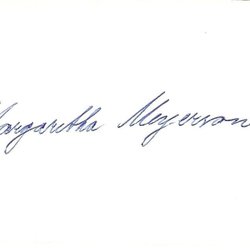 Margaretha Meyerson